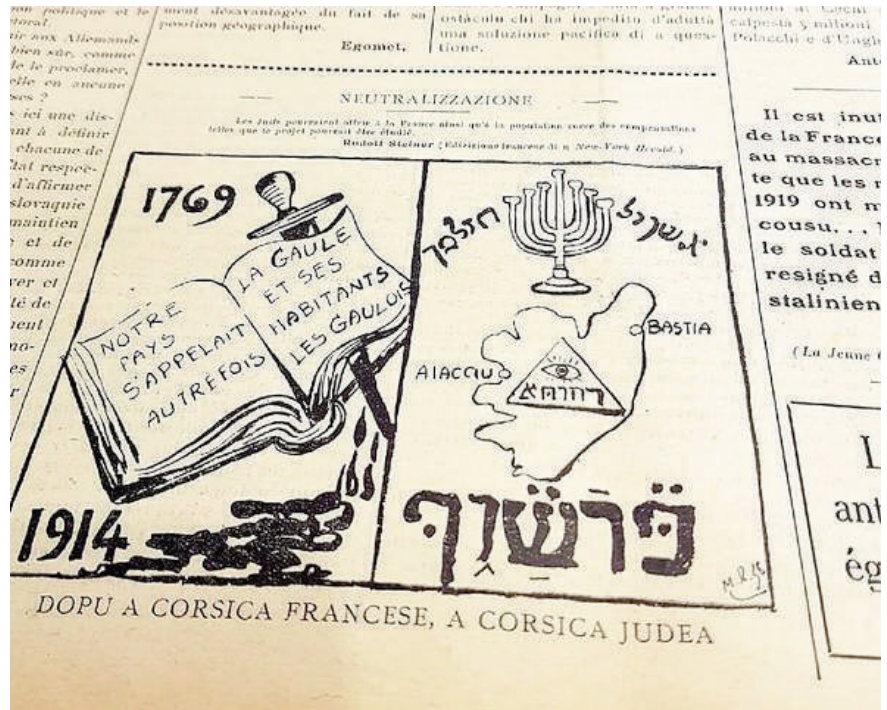 on politique et le
toral.
ir aux Allemands
bien sûr, comme
le proclamer,
elle en aucune
ses ?
s ici une dis-
nt à définir
chacune de
État respec-
d'affirmer
slovaquie
maintien
et de
comme
ver et
té de
ment
mo-
es
r
ment désavantagée du fait de sa
position géographique.
Egomet.
ostàculu chi ha impeditu d'adduttà
una suluzione pacifica di a ques-
tione.
NEUTRALIZZAZIONE
Les Juifs pourraient offrir à la France ainsi qu'à la population corse des compensations
telles que le projet pourrait être étudié.
Rudolf Steiner (Edizione francese di u New-York Herald.)
1769
NOTRE
PAYS
S'APPELAIT
AUTREFOIS
LA GAULE
ET SES
HABITANTS
LES GAULOIS
1914
BASTIA
AIACCIU
DOPU A CORSICA FRANCESE, A CORSICA JUDEA
calpesta 5 milioni
Polacchi e d'Ungh
Ant
Il est inut
de la France
au massacr
te que les
1919 ont m
cousu...
le soldat
resigné d
stalinien
(La Jeune
L
ant
ég